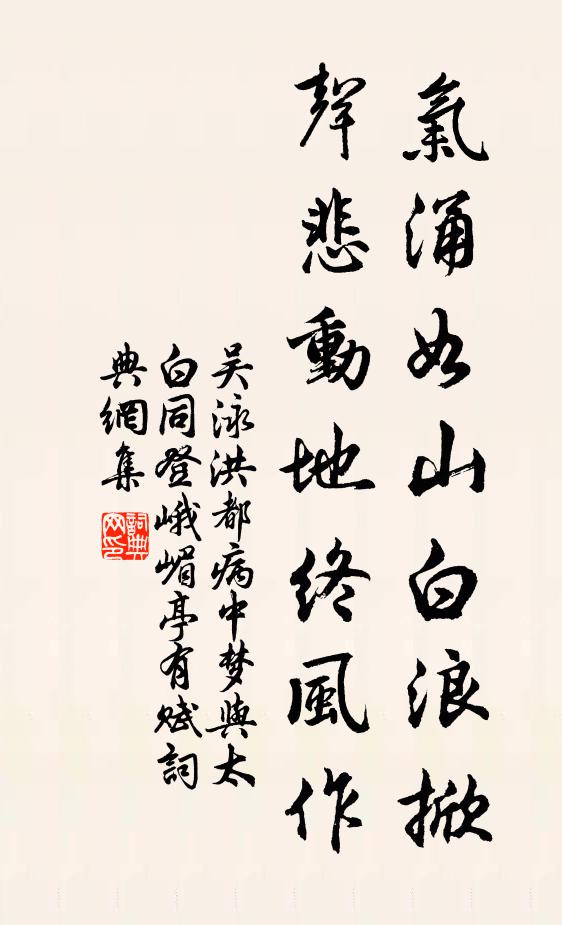 氣涌如山白浪掀
聲悲動地終風作
吴泳洪都病中梦與太
白同登峨嵋亭有赋詞
典網集
詞典網印